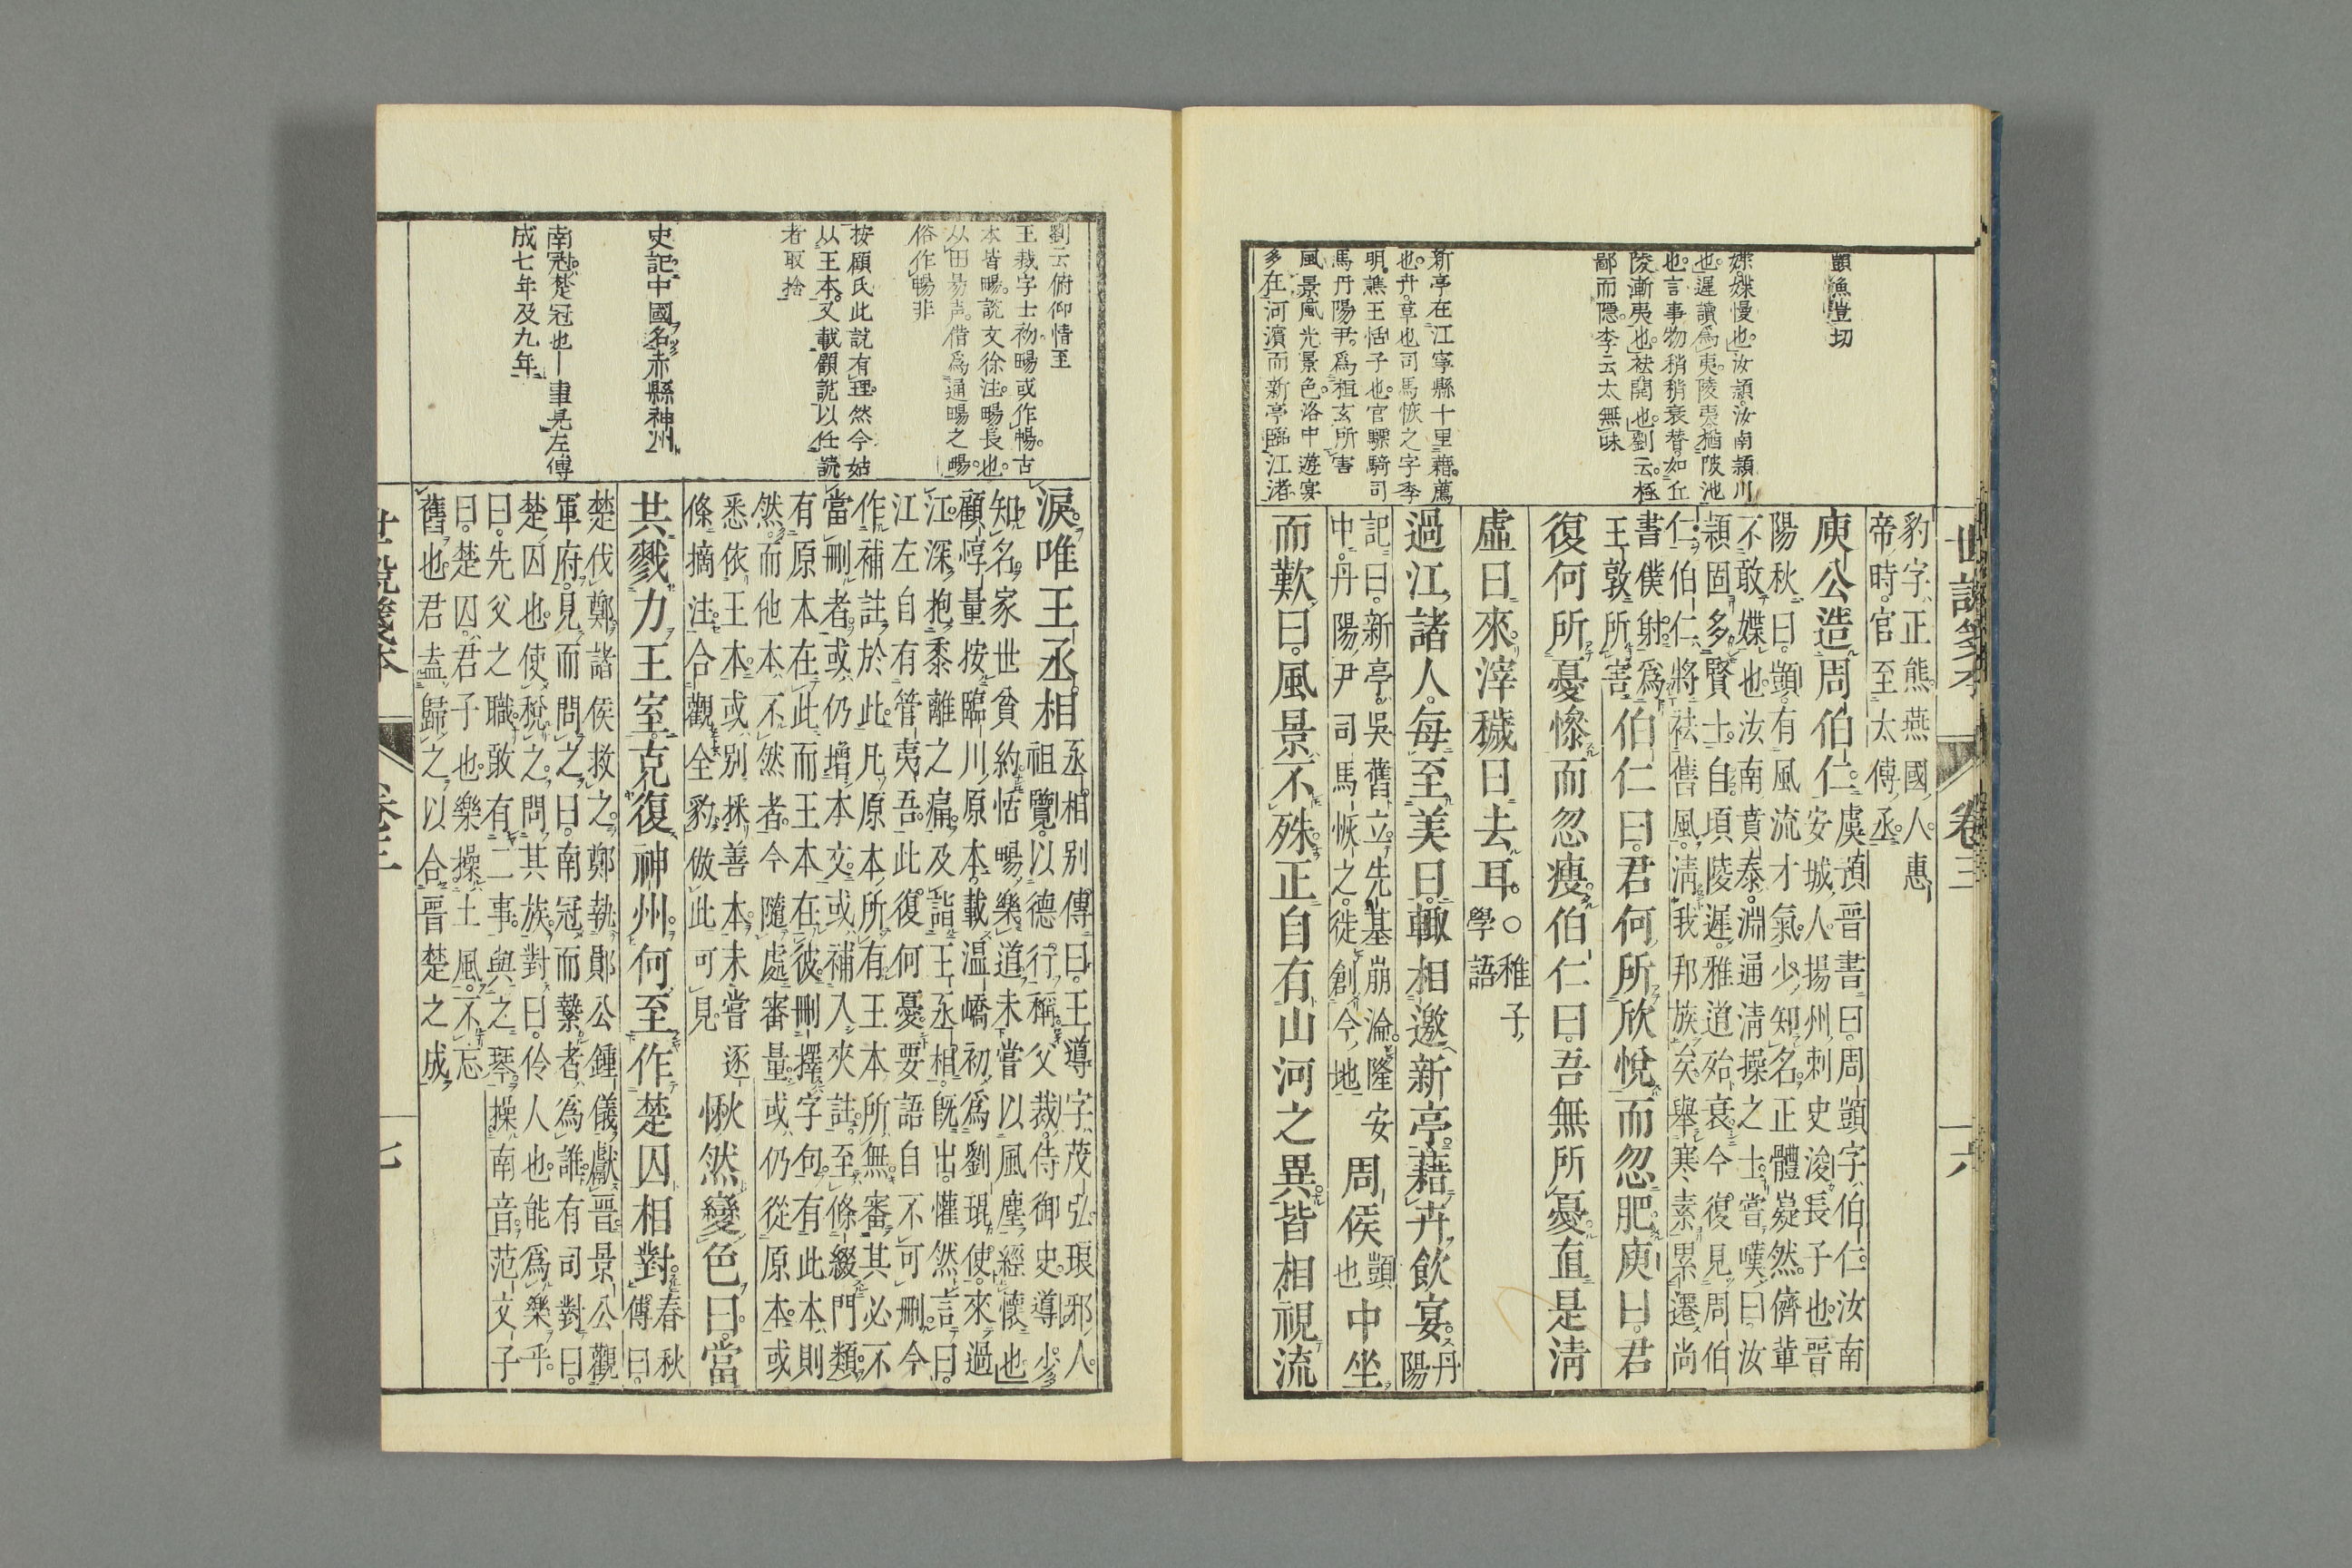 世說箋本 卷三 十六
顗魚豈切
媟媟慢也汝潁汝南潁川
也遲讀爲夷陵夷猶陂池
也言事物稍稍衰替如丘
陵漸夷也袪開也劉云極
鄙而隱李云太無味
新亭在江寧縣十里藉薦
也卉草也司馬恢之字季
明譙王恬子也官驃騎司
馬丹陽尹爲祖玄所害
風景風光景色洛中遊宴
多在河濱而新亭臨江渚
豹字正熊燕國人惠
帝時官至太傅丞
庾公造周伯仁
虞預晉書曰周顗字伯仁汝南
安城人揚州刺史浚長子也晉
陽秋曰顗有風流才氣少知名正體嶷然儕輩
不敢媟也汝南賁泰淵通淸操之士嘗嘆曰汝
潁固多賢士自頃陵遲雅道殆衰今復見周伯
仁伯仁將袪舊風淸我邦族矣舉寒素累遷尚
書僕射爲
王敦所害
伯仁曰君何所欣悅而忽肥庾曰君
復何所憂慘而忽瘦伯仁曰吾無所憂直是淸
虛日來滓穢日去耳○稚子學語
過江諸人每至美日輒相邀新亭藉卉飮宴丹陽
記曰新亭吳舊立先基崩淪隆安
中丹陽尹司馬恢之徙創今地
周侯顗也中坐
而歎曰風景不殊正自有山河之異皆相視流
劉云俯仰情至
王裁字士初暢或作暢古
本皆暢說文徐注暢長也
从田昜声借爲通暢之暢
俗作暢非
按顧氏此說有理然今姑
以王本又載顧說以任讀
者取捨
史記中國名赤縣神州
南冠楚冠也一事見左傳
成七年及九年
淚唯王丞相
丞相別傳曰王導字茂弘琅邪人
祖覽以德行稱父裁侍御史導少
知名家世貧約恬暢樂道未嘗以風塵經懷也
顧惇量按臨川原本載温嶠初爲劉琨使來過
江深抱黍離之痛及詣王丞相旣出懽然言曰
江左自有管夷吾此復何憂要語自不可刪今
作補註於此凡原本所有王本所無審其必不
當刪者或仍增本文或補入夾註至條綴門類
有原本在此而王本在彼刪擇字句有此本則
然而他本不然者今隨處審量或仍從原本或
悉依王本或別採善本未嘗逐
條摘注合觀全豹倣此可見
愀然變色曰當
共戮力王室克復神州何至作楚囚相對
春秋傳曰
楚伐鄭諸侯救之鄭執鄖公鍾儀獻晉景公觀
軍府見而問之曰南冠而縶者爲誰有司對曰
楚囚也使稅之問其族對曰伶人也能爲樂乎
曰先父之職敢有二事與之琴操南音范文子
曰楚囚君子也樂操土風不忘
舊也君盍歸之以合晉楚之成
世說箋本 卷三 十七